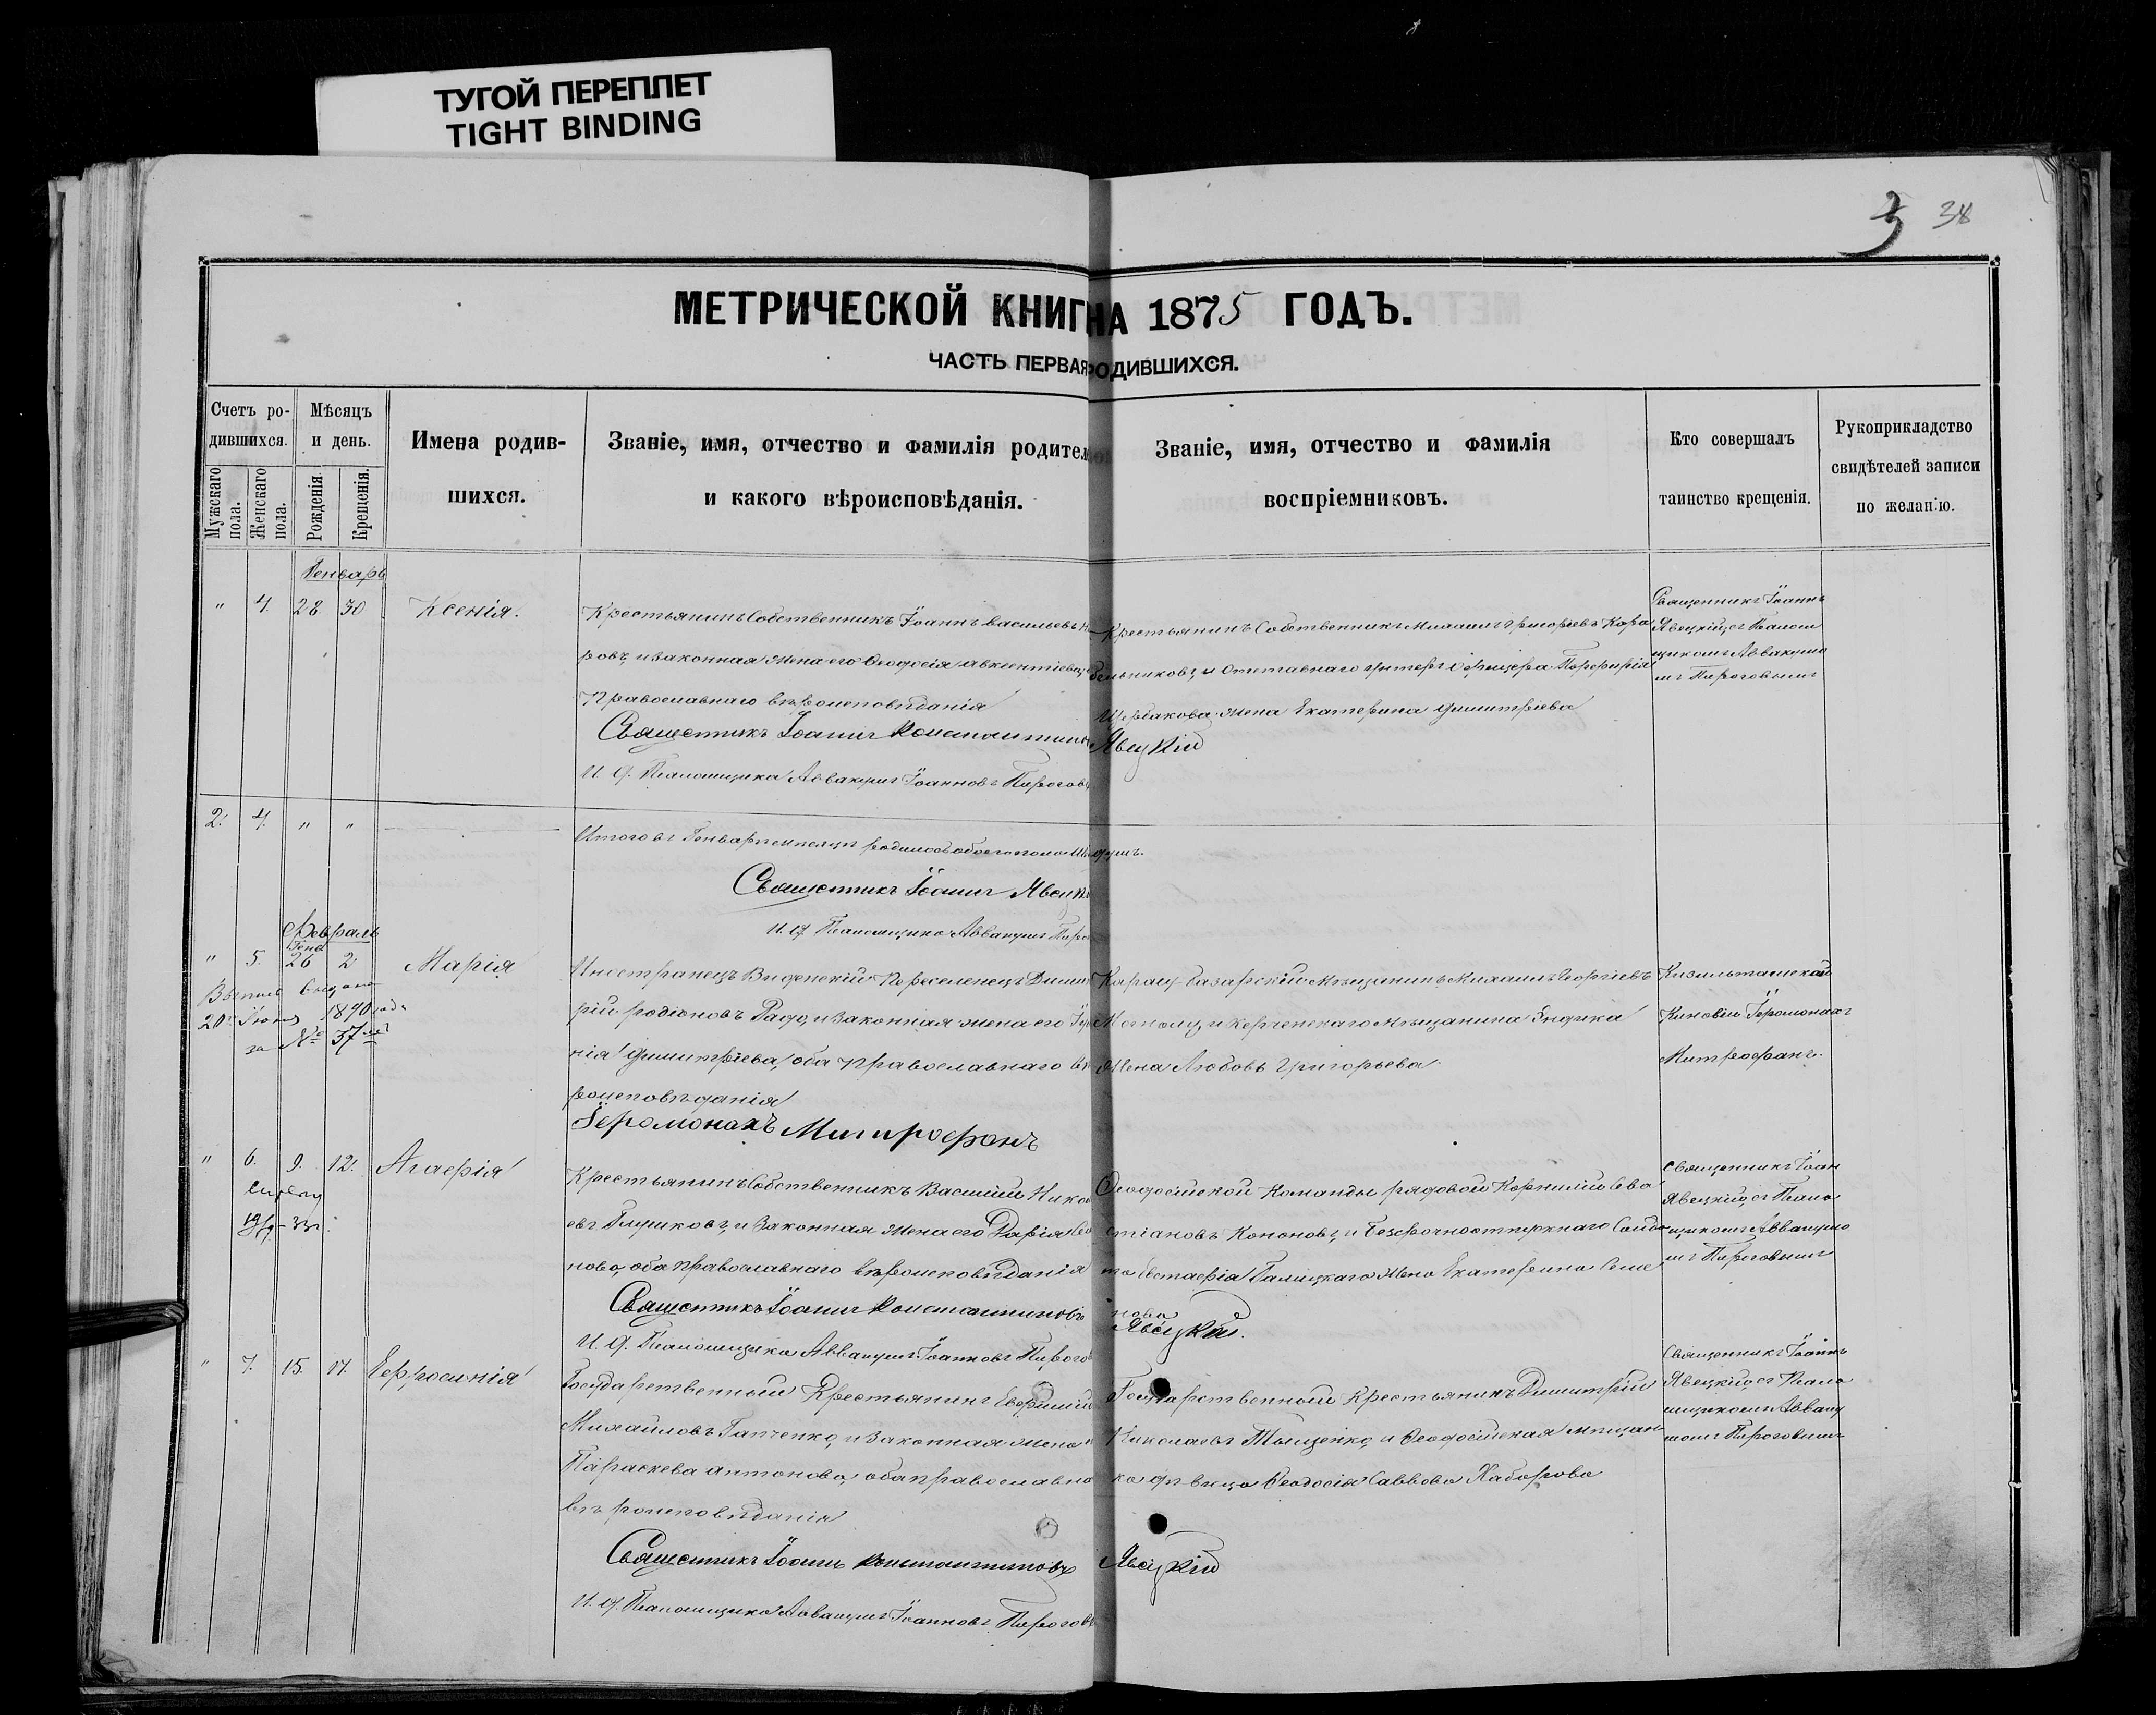 ТУГОЙ ПЕРЕПЛЕТ
TIGHT BINDING
3 38
МЕТРИЧЕСКОЙ КНИГ НА 1875 ГОДЪ.
ЧАСТЬ ПЕРВАЯ РОДИВШИХСЯ.
Счетъ ро-
дившихся.
Мужскаго пола.
Женскаго пола.
Мѣсяцъ
и день.
Рожденія.
Крещенія.
Имена родив-
шихся.
Званіе, имя, отчество и фамилія родител
и какого вѣроисповѣданія.
Званіе, имя, отчество и фамилія
воспріемниковъ.
Кто совершалъ
таинство крещенія.
Рукоприкладство
свидѣтелей записи
по желанію.
Генварь
" 4. 28. 30 Ксенія.
Крестьянинъ Собственникъ Іоаннъ Васильевъ
ровъ, и законная жена его Феодосія Авксентіева,
Православнаго вѣроисповѣданія
Священникъ Іоаннъ Константинов
И. д. Псаломщика Аввакумъ Іоанновъ Пирогов
Крестьянинъ Собственникъ Михаилъ Григорьевъ Кора
бельниковъ, и Отставнаго Унтеръ Офицера Порфирія
Щербакова жена Екатерина Димитріева
Явецкій
Священникъ Іоаннъ
Явецкій, съ Псалом
щикомъ Аввакумо
мъ Пироговымъ
2. 4. " "
Итого въ Генварѣ мѣсяцѣ родилось обоего пола душъ.
Священникъ Іоаннъ Явецк
И. д. Псаломщика Аввакумъ Пиро
Февраль
Генв
" 5. 26 2 Марія
Выпись выдана
20 Іюня 1890 года
за № 37
Иностранецъ Видинскій Переселенецъ Дими
трій Родіоновъ Радо, и законная жена его
нія Димитріева, оба православнаго вѣ
роисповѣданія
Іеромонахъ Митрофанъ
Карасу-Базарскій Мѣщанинъ Михаилъ Георгіевъ
и Керченскаго Мѣщанина
жена Любовь Григорьева.
Кизильташской
Киновіи Іеромонахъ
Митрофанъ.
" 6. 9. 12. Агафія
Крестьянинъ Собственникъ Василій Никола
евъ Глушковъ, и законная жена его Дарія
нова, оба православнаго вѣроисповѣданія
Священникъ Іоаннъ Константиновъ
И. д. Псаломщика Аввакумъ Іоанновъ Пирогов
Феодосійской Команды рядовой Корнилій Сева
стіановъ Кононовъ, и Безсрочноотпускнаго Солда
та Евстафія Галицкаго жена Екатерина Семе
нова
Явецкій.
Священникъ Іоан
Явецкій, съ Псало
мщикомъ Аввакумо
мъ Пироговымъ
" 7. 15. 17. Ефросинія
Государственный Крестьянинъ Евфимій
Михайловъ Гапченко, и законная жена
Параскева Антонова, оба православна
вѣроисповѣданія
Священникъ Іоаннъ Константиновъ
И. д. Псаломщика Аввакумъ Іоанновъ Пирогов
Государственный Крестьянинъ Димитрій
Николаевъ Тыщенко, и Феодосійская мѣщан
ка дѣвица Феодосія Саввова Хаборова
Явецкій
Священникъ Іоаннъ
Явецкій, съ Псало
мщикомъ Аввак
умомъ Пироговымъ